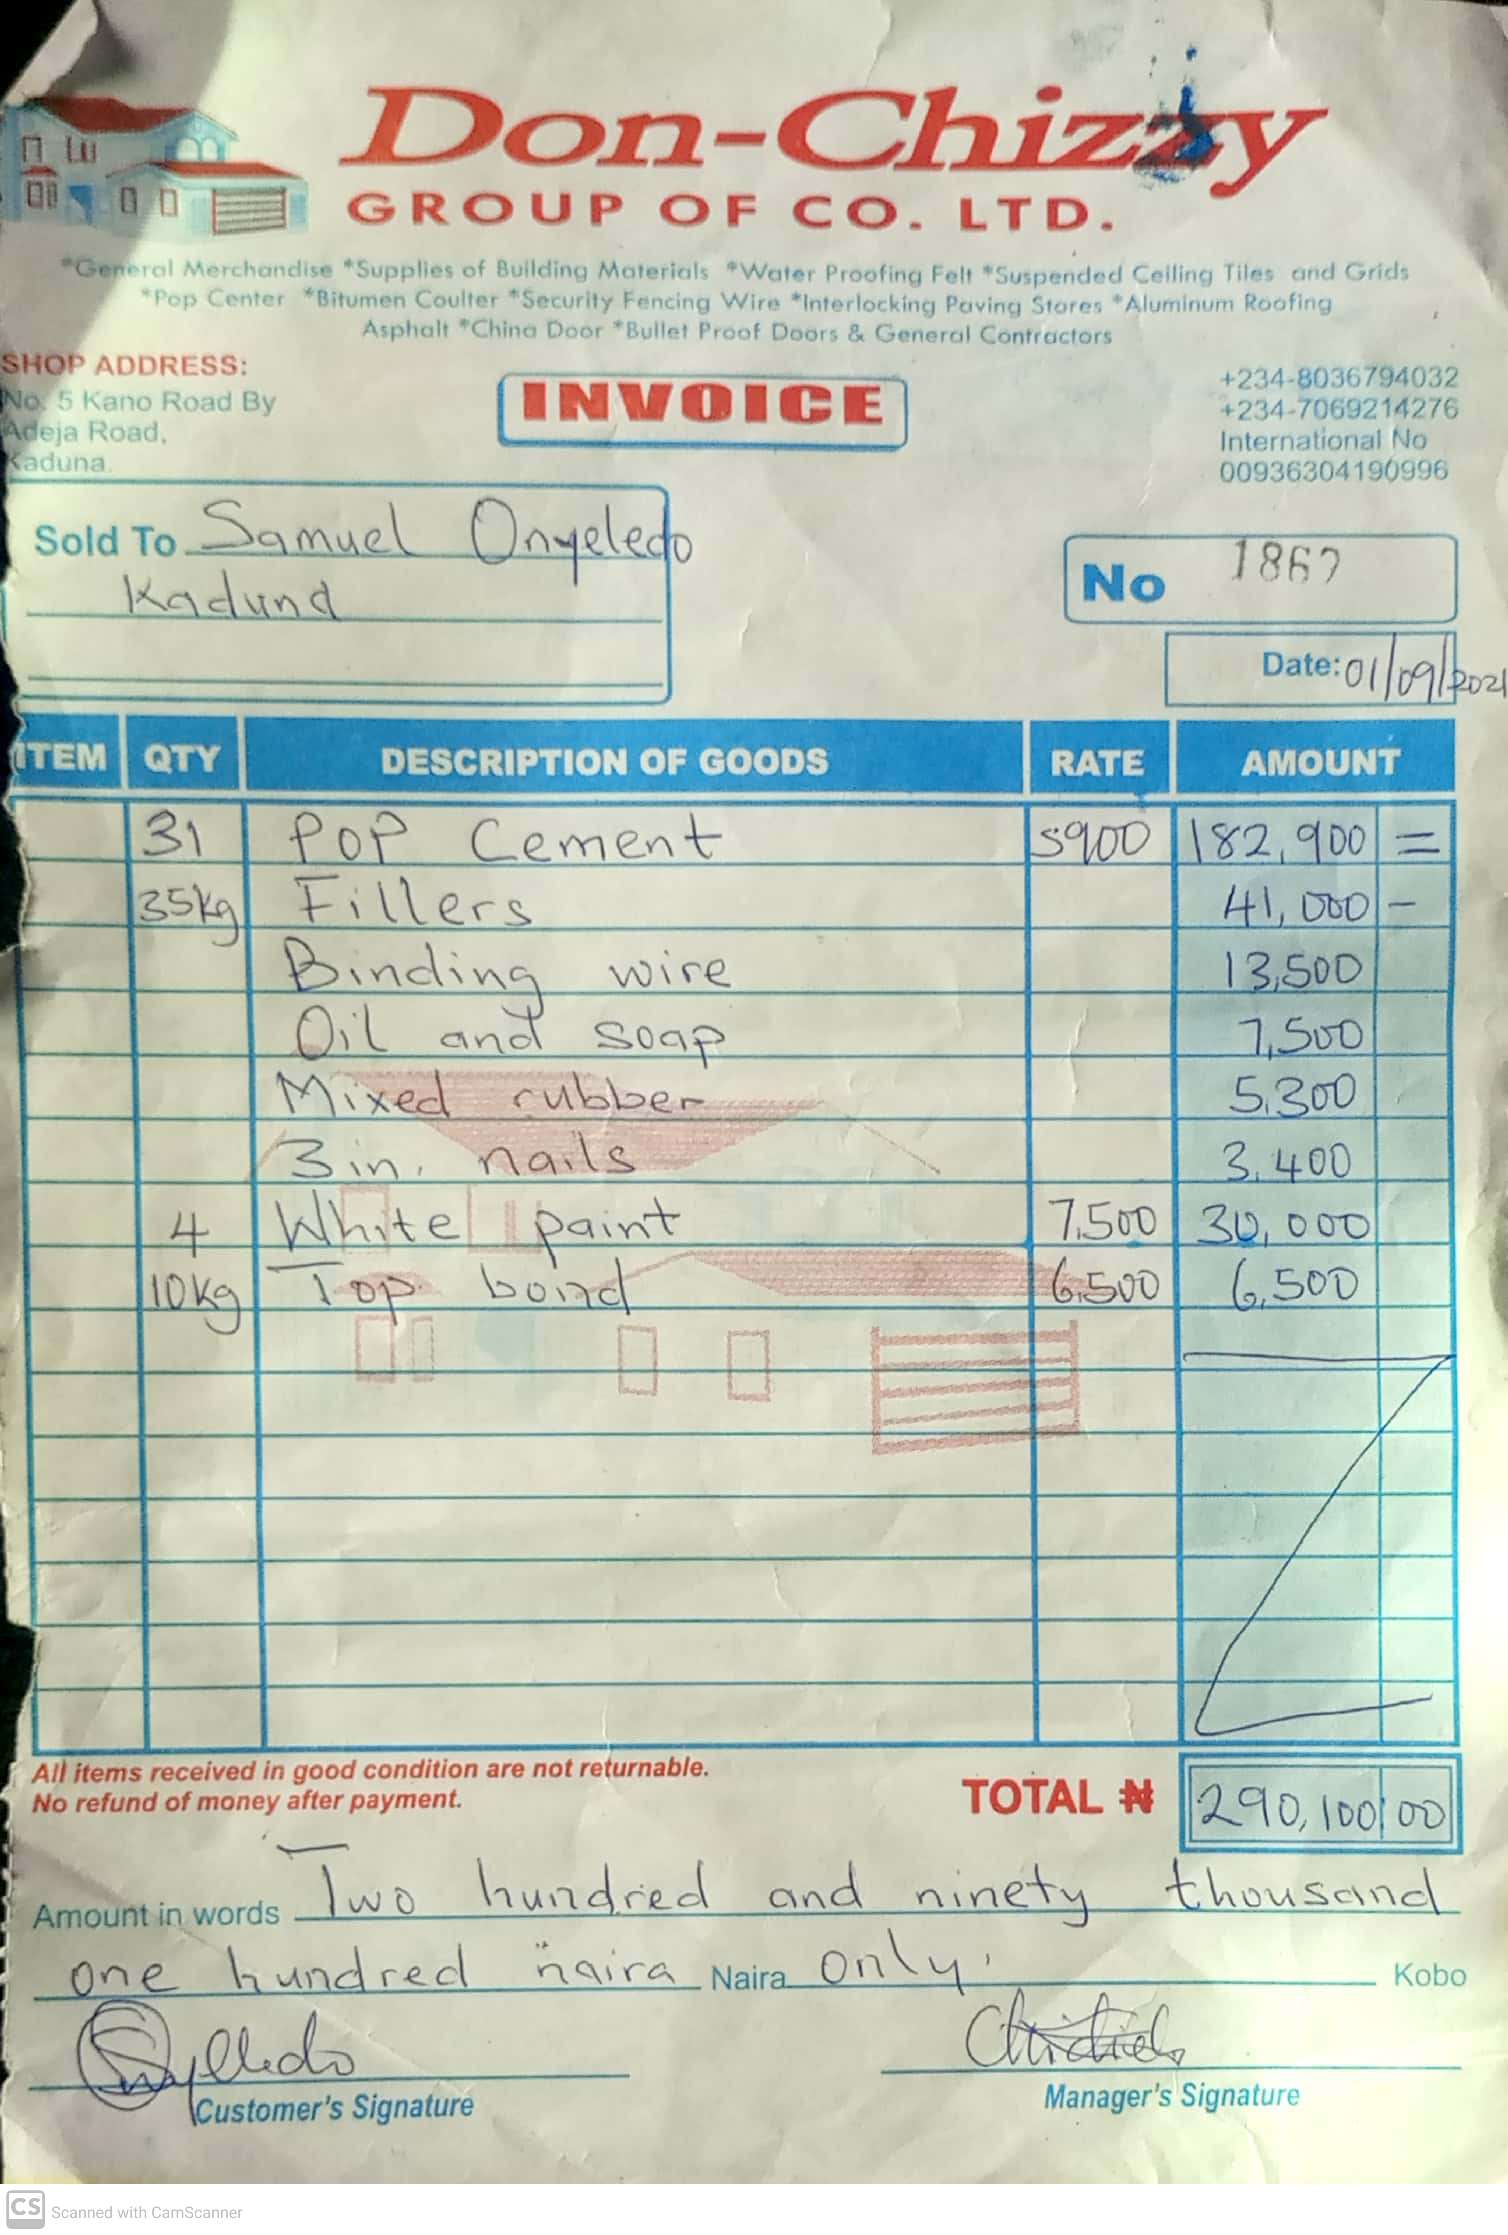 Don-Chizzy
GROUP OF CO. LTD.
*General Merchandise *Supplies of Building Materials *Water Proofing Felt *Suspended Ceiling Tiles and Grids
*Pop Center *Bitumen Coulter *Security Fencing Wire *Interlocking Paving Stores *Aluminum Roofing
Asphalt *China Door *Bullet Proof Doors & General Contractors
SHOP ADDRESS:
No. 5 Kano Road By
Adeja Road,
Kaduna.
INVOICE
+234-8036794032
+234-7069214276
International No
00936304190996
Sold To Samuel Onyeledo
Kaduna
No 1867
Date: 01/09/2021
ITEM QTY DESCRIPTION OF GOODS RATE AMOUNT
31 POP Cement 5900 182,900 =
35kg Fillers 41,000 -
Binding wire 13,500
Oil and soap 7,500
Mixed rubber 5,300
3 in. nails 3,400
4 White paint 7,500 30,000
10kg Top bond 6,500 6,500
All items received in good condition are not returnable.
No refund of money after payment.
TOTAL ₦ 290,100 00
Amount in words Two hundred and ninety thousand
one hundred naira Naira only. Kobo
Customer's Signature
Manager's Signature
CS Scanned with CamScanner